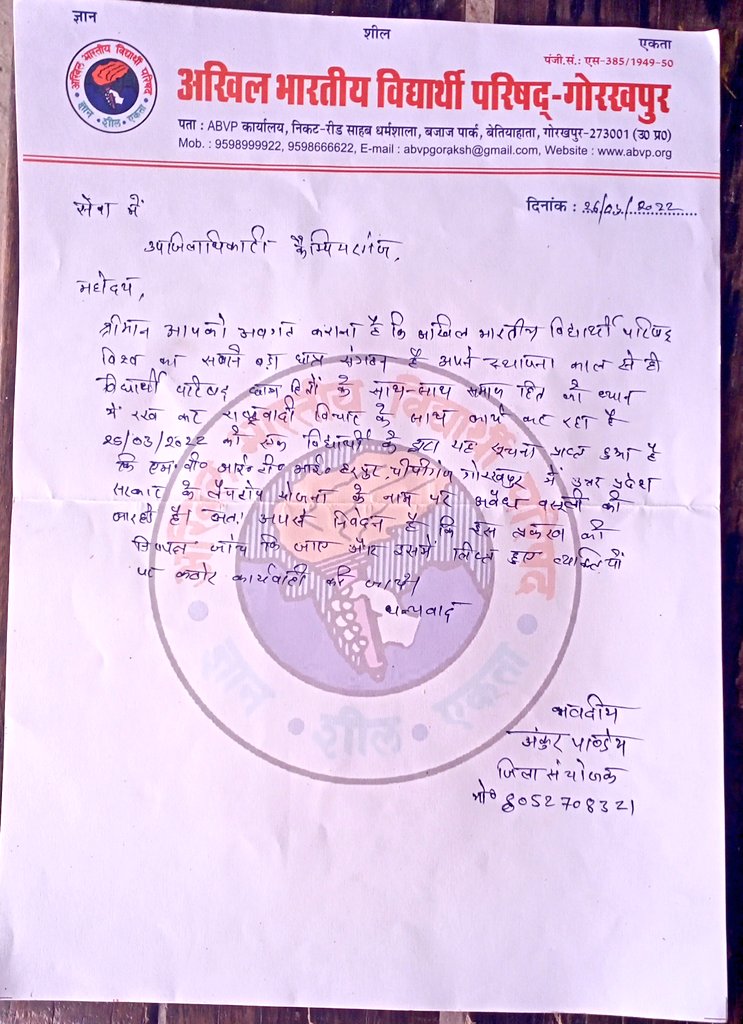 ज्ञान
शील
एकता
पंजी.सं.: एस-385/1949-50
अखिल भारतीय विद्यार्थी परिषद्
ज्ञान • शील • एकता
अखिल भारतीय विद्यार्थी परिषद्-गोरखपुर
पता : ABVP कार्यालय, निकट-रीड साहब धर्मशाला, बजाज पार्क, बेतियाहाता, गोरखपुर-273001 (उ0 प्र0)
Mob. : 9598999922, 9598666622, E-mail : abvpgoraksh@gmail.com, Website : www.abvp.org
सेवा में
दिनांक : 26/03/2022
उपजिलाधिकारी कैम्पियरगंज,
महोदय,
श्रीमान आपको अवगत कराना है कि अखिल भारतीय विद्यार्थी परिषद
विश्व का सबसे बड़ा छात्र संगठन है अपने स्थापना काल से ही
विद्यार्थी परिषद छात्र हितों के साथ-साथ समाज हित को ध्यान
में रख कर राष्ट्रवादी विचार के साथ कार्य कर रहा है
26/03/2022 को एक विद्यार्थी के द्वारा यह सूचना प्राप्त हुआ है
कि एम॰ पी॰ आई॰ टी॰ आई॰ हरपुर, पीपीगंज गोरखपुर में उत्तर प्रदेश
सरकार के लैपटॉप योजना के नाम पर अवैध वसूली की
जा रही है। अतः आपसे निवेदन है कि इस प्रकरण की
निष्पक्ष जांच कि जाए और इसमें लिप्त हुए व्यक्तियों
पर कठोर कार्यवाही की जाये।
धन्यवाद
भवदीय
अंकुर पाण्डेय
जिला संयोजक
मो॰ 8052708321
ज्ञान • शील • एकता